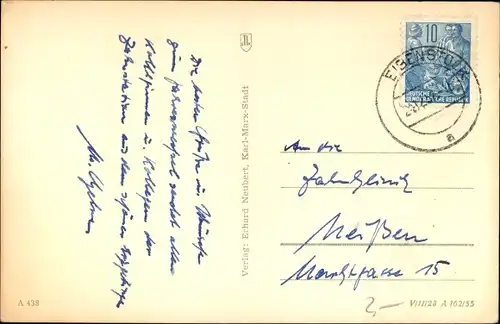 Die besten Grüße u. Wünsche
zum Jahreswechsel sendet allen
Kolleginnen u. Kollegen der
Zahnstation aus dem schönen Erzgebirge
Verlag: Erhard Neubert, Karl-Marx-Stadt
10
DEUTSCHE
DEMOKRATISCHE REPUBLIK
EIBENSTOCK
a
An die
Zahnklinik
Meißen
Marktgasse 15
2,-
A 433
V/11/28 A 162/55